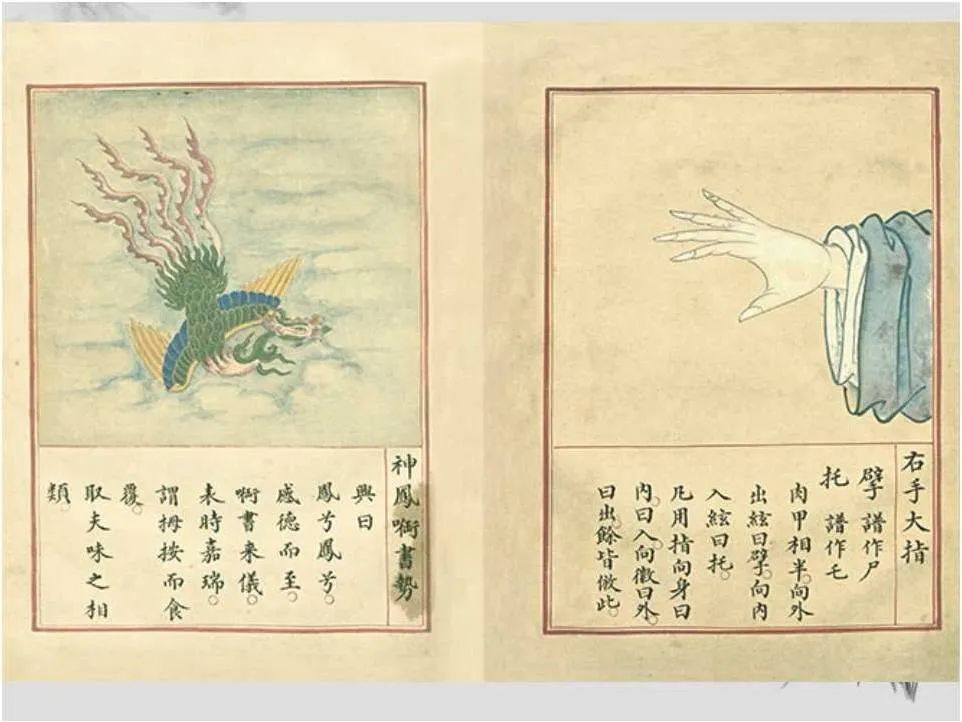 右手大指
擘 譜作尸
托 譜作乇
肉甲相半。向外
出絃曰擘。向內
入絃曰托。
凡用指向身曰
內。曰入向徽曰外。
曰出。餘皆倣此。
神鳳啣書勢
興曰
鳳兮鳳兮。
感德而至。
啣書来儀。
表時嘉瑞。
謂拇按而食
覆。
取夫味之相
類。